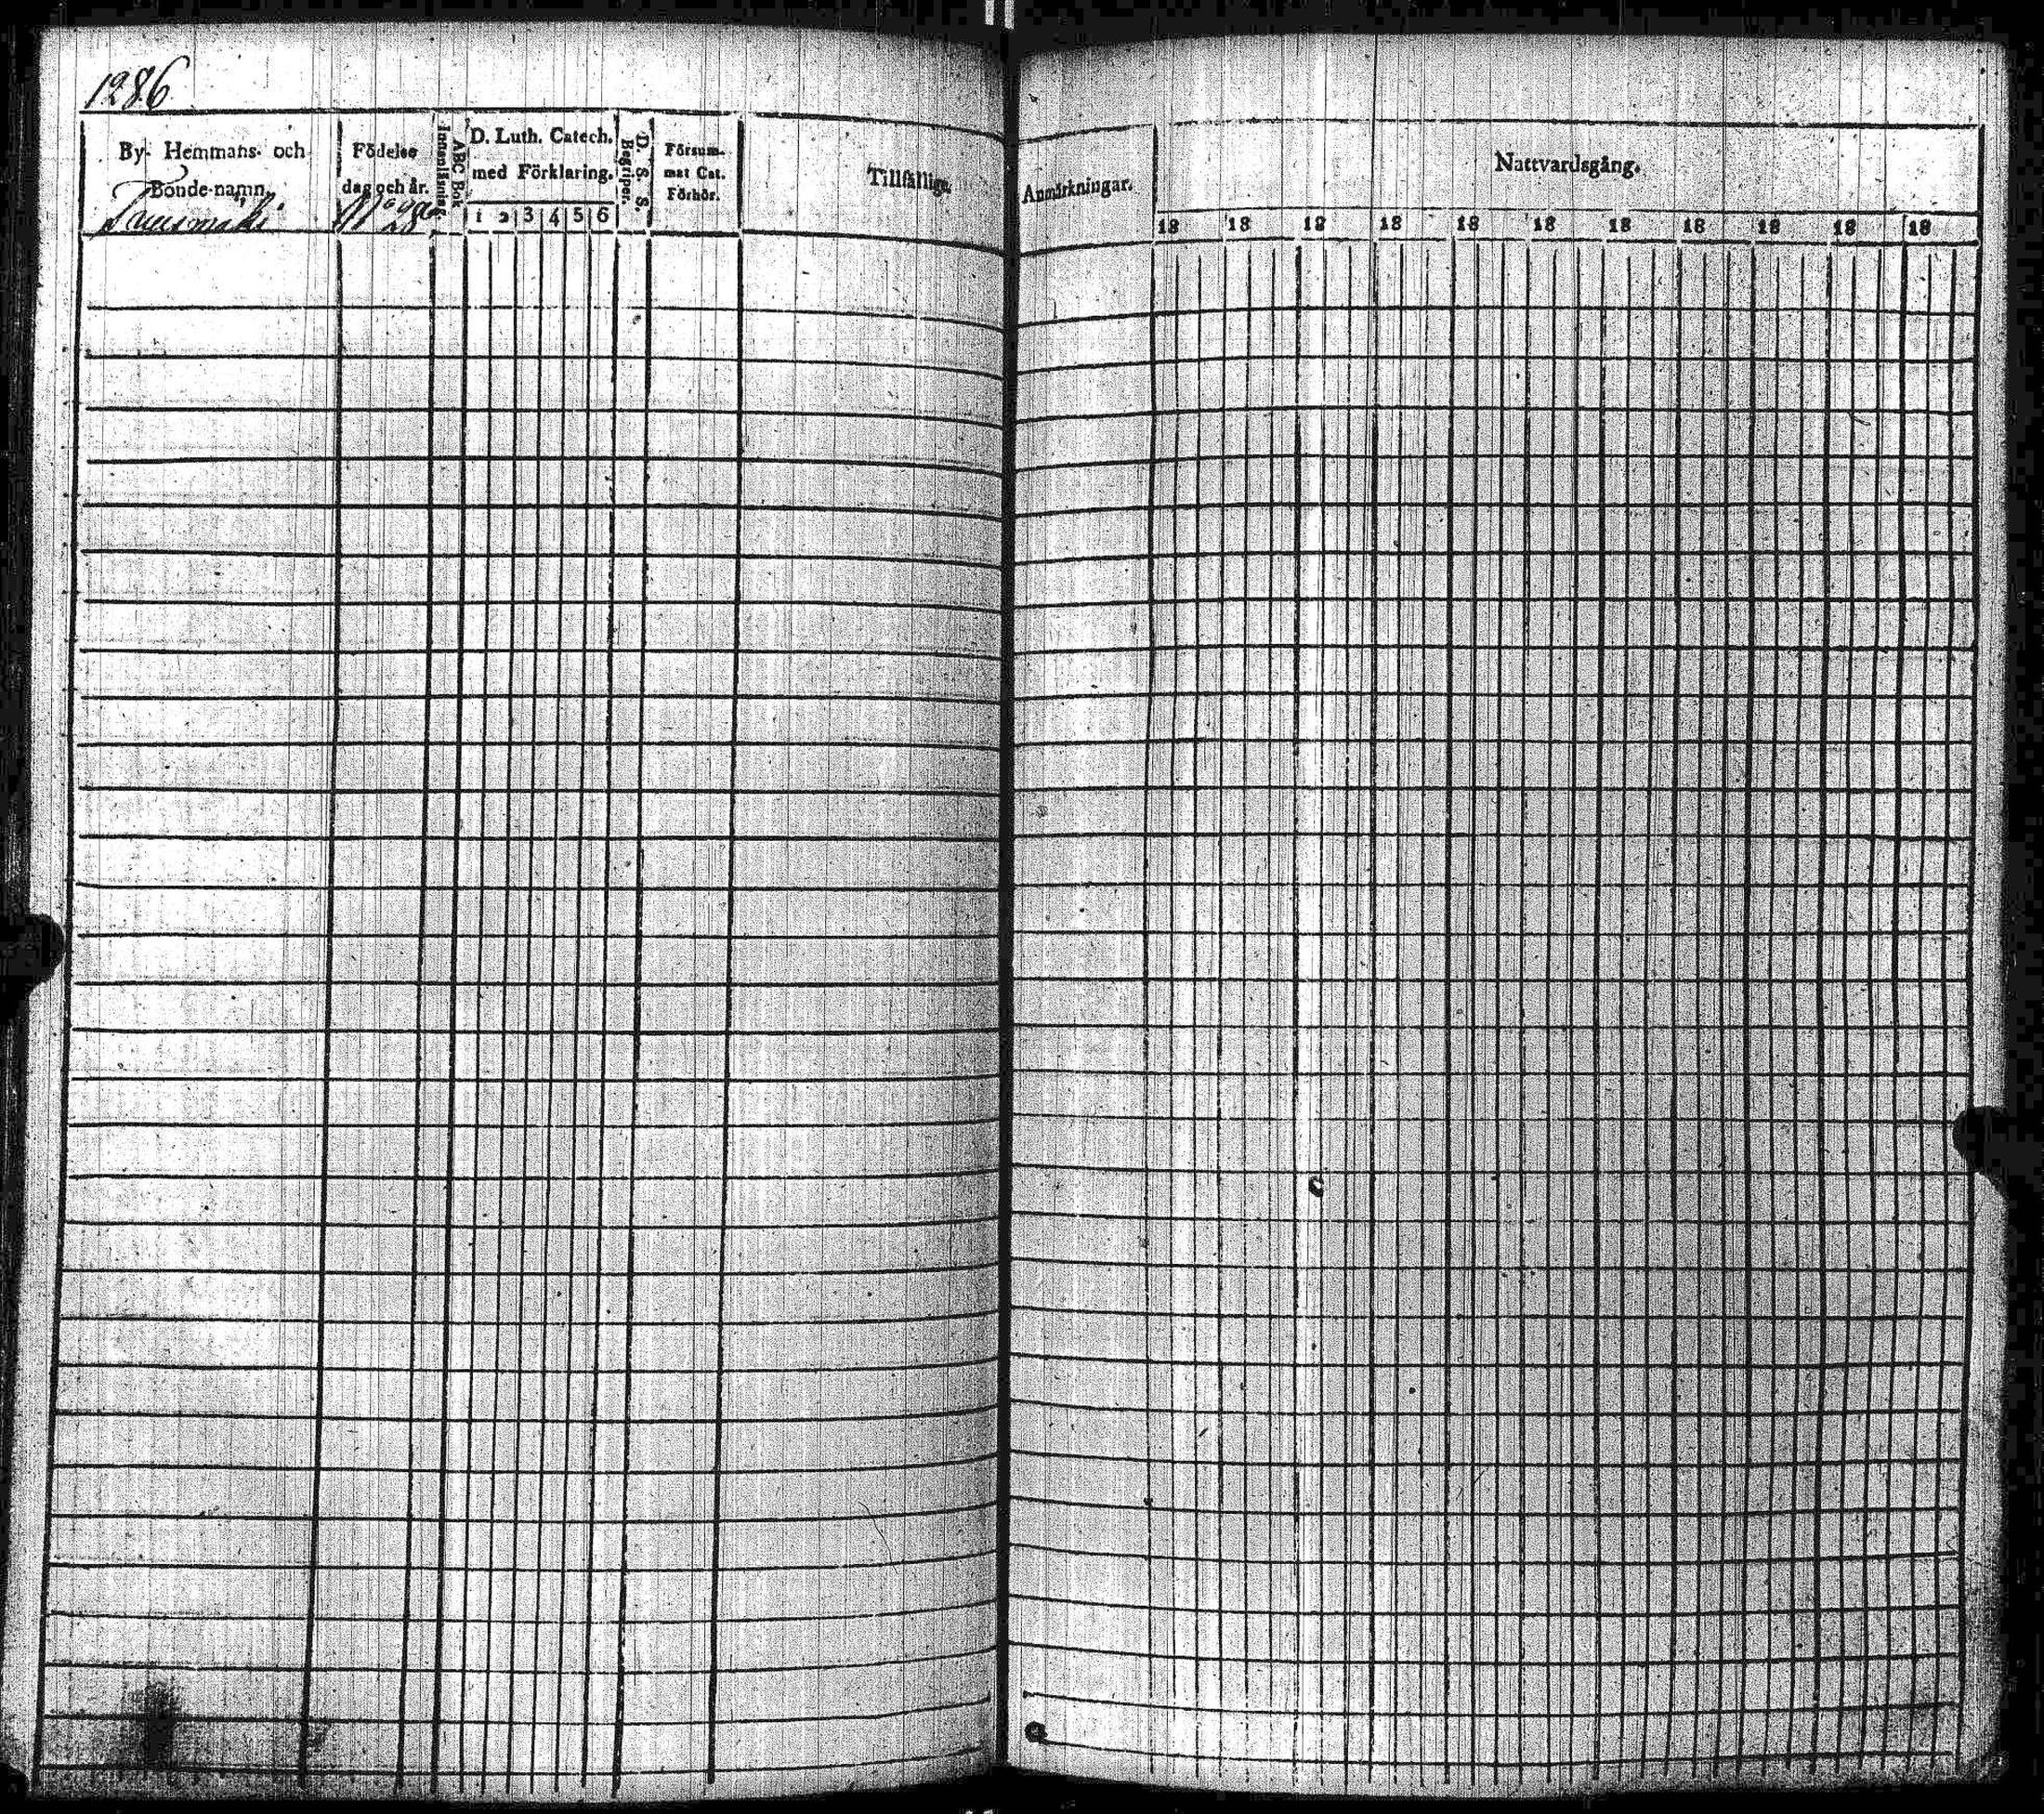 1286
By- Hemmans- och
Bonde-namn.
Födelse
dag och år.
Innanläsning
ABC Bok
D. Luth. Catech.
med Förklaring.
1 2 3 4 5 6
Begriper.
D. S. S.
Försum-
mat Cat.
Förhör.
Tillfällige
Anmärkningar.
Nattvardsgång.
18 18 18 18 18 18 18 18 18 18 18